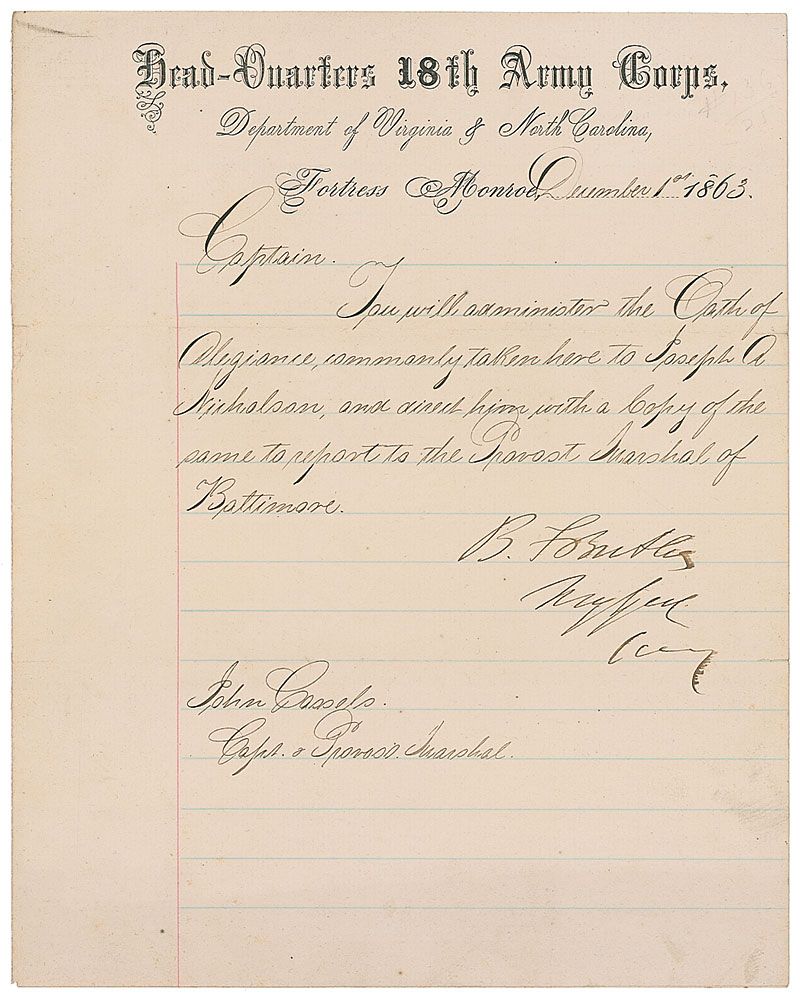 Head-Quarters 18th Army Corps,
Department of Virginia & North Carolina,
Fortress Monroe, December 1st 1863.
Captain.
You will administer the Oath of
Alegiance, commonly taken here to Joseph A
Nicholson, and direct him, with a Copy of the
same to report to the Provost Marshal of
Baltimore.
B. F Butler
Maj Genl
Comg
John Cassels.
Capt. & Provost. Marshal.